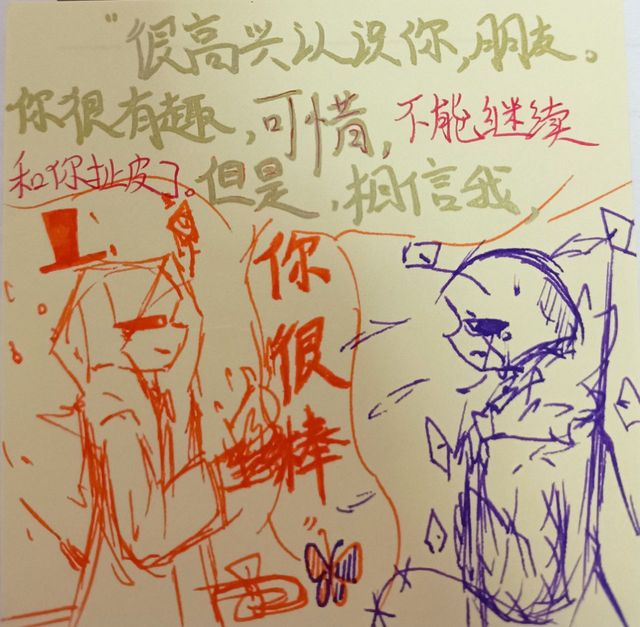 “很高兴认识你,朋友。
你很有趣,可惜,不能继续
和你扯皮了。但是,相信我,
你
很
棒
”